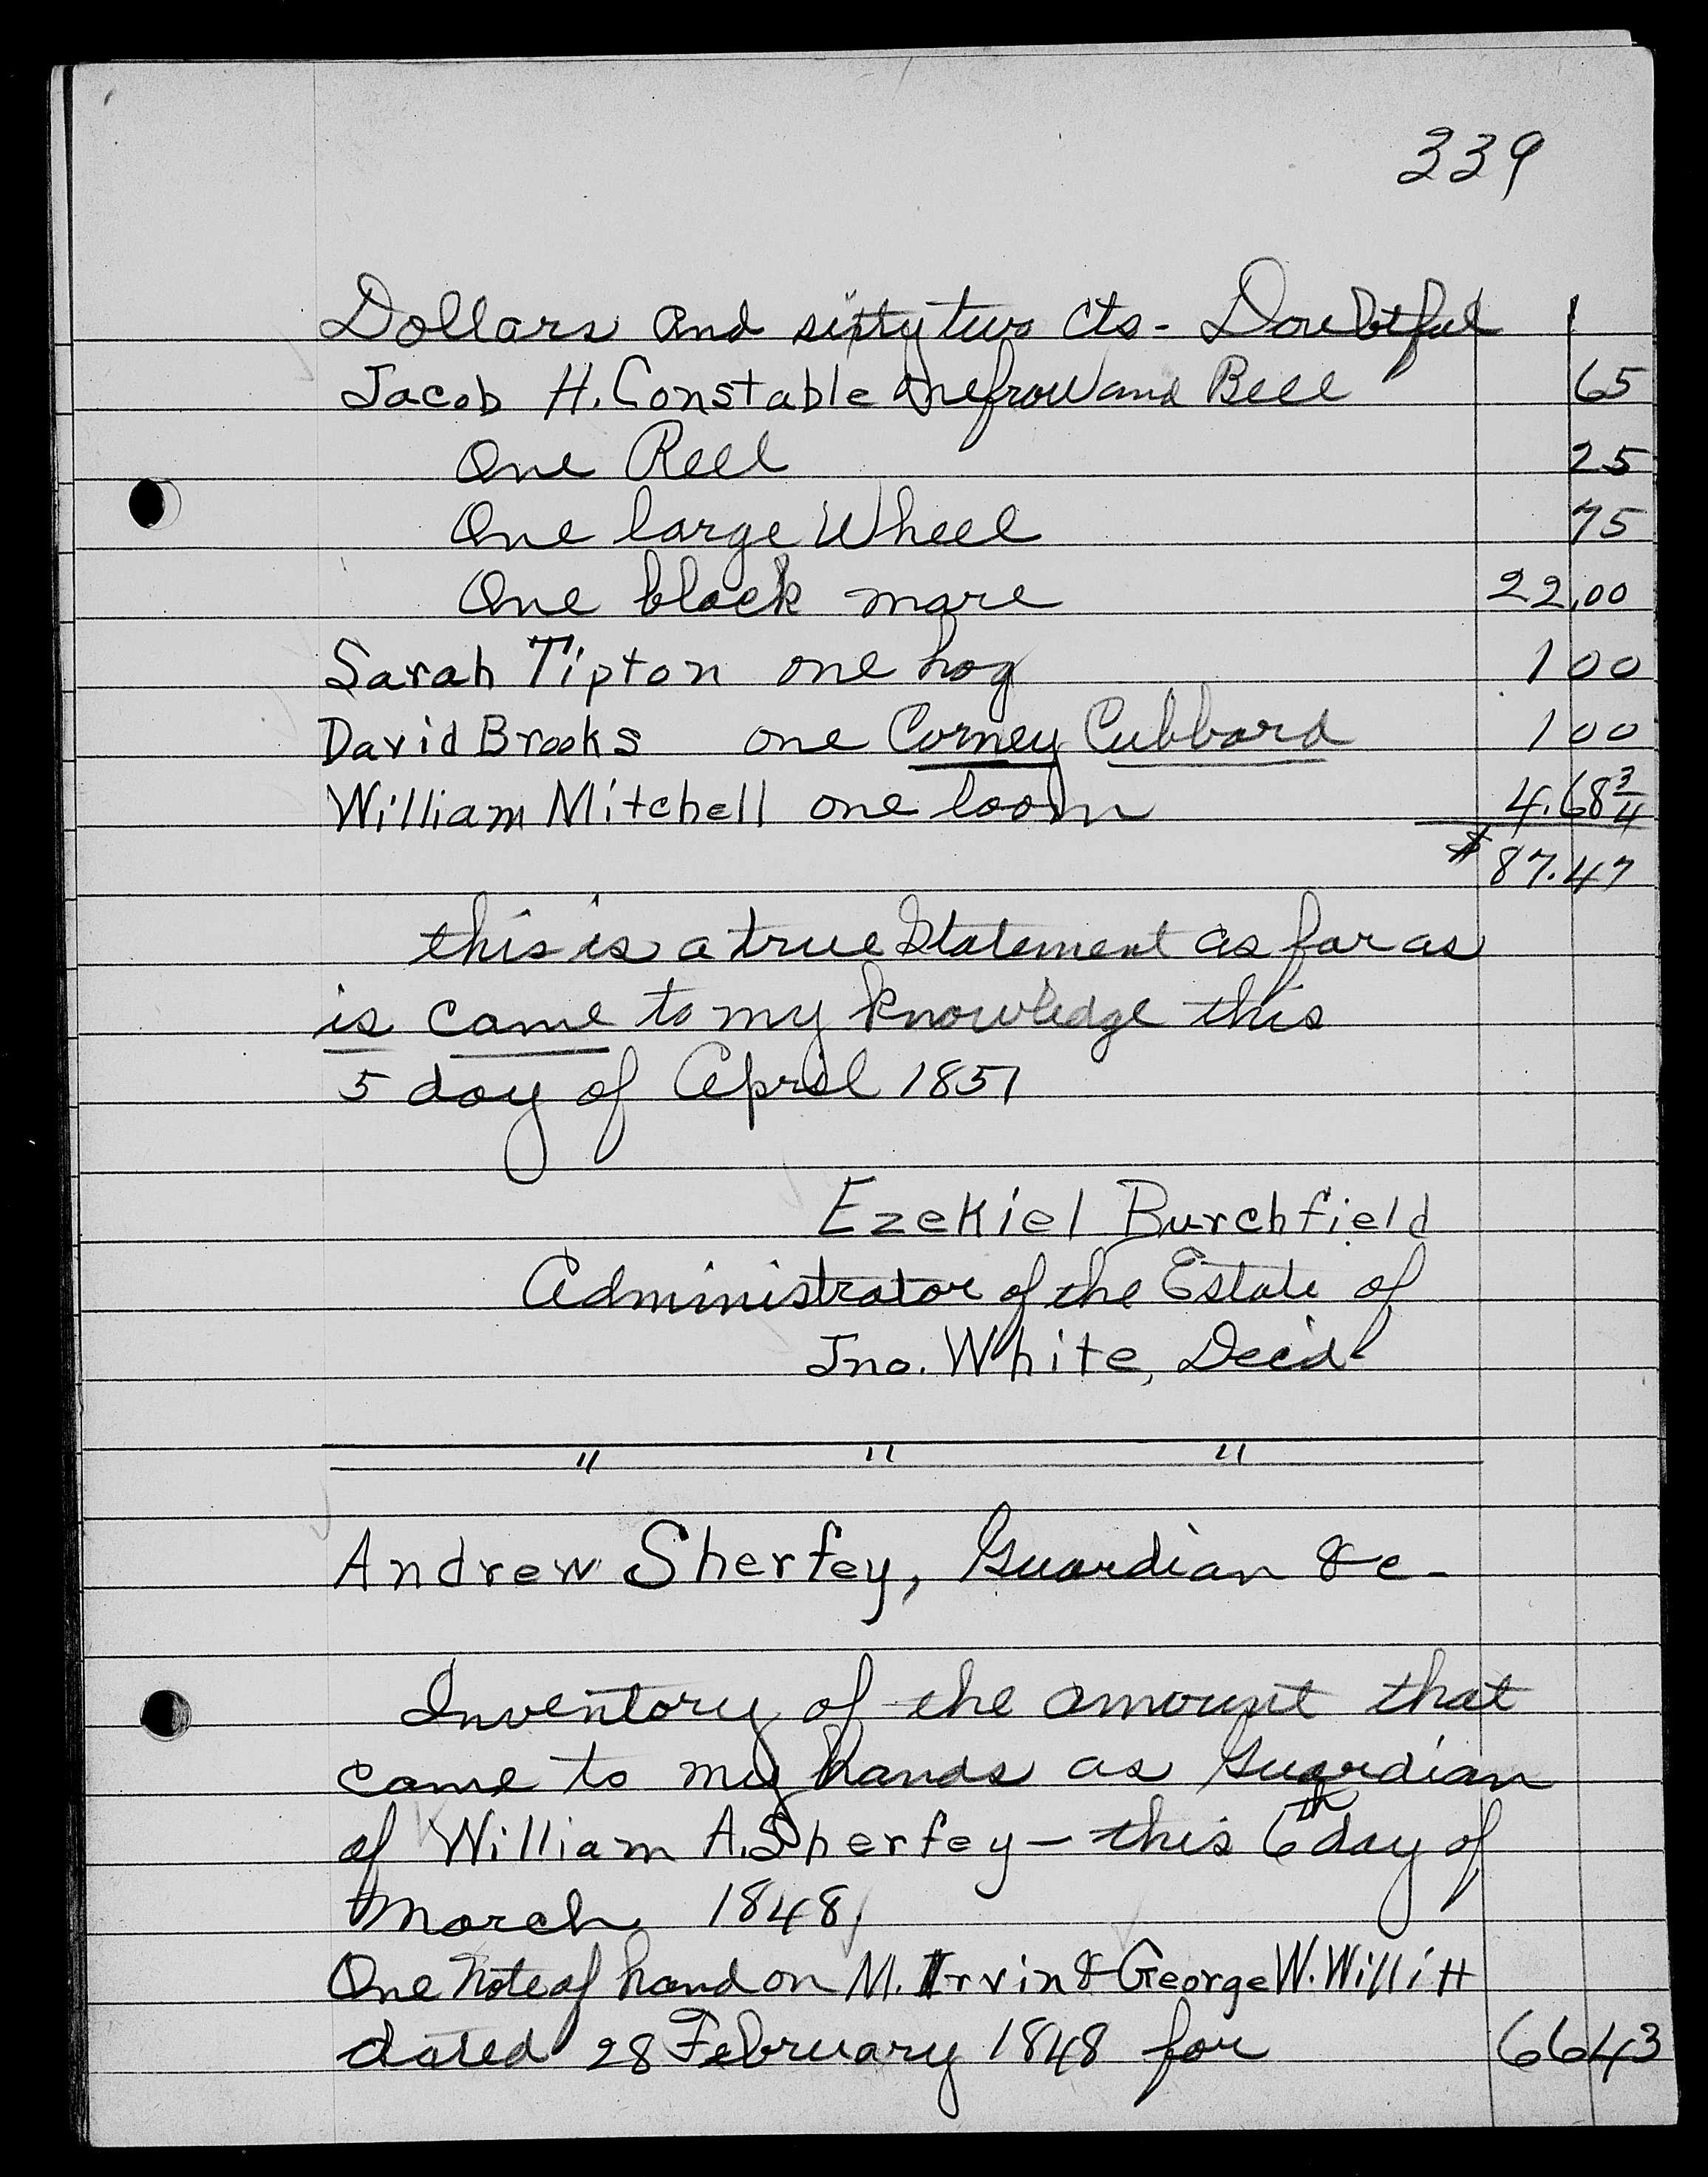 339
Dollars and sixty two cts - Doubtful
Jacob H. Constable One frow and Bell 65
One Reel 25
One large Wheel 75
One black mare 22.00
Sarah Tipton one hog 1 00
David Brooks one Corney Cubbard 1 00
William Mitchell one loom 4.68 3/4
$ 87.47
this is a true Statement as far as
is came to my knowledge this
5 day of April 1851
Ezekiel Burchfield
Administrator of the Estate of
Jno. White, Decd
" " "
Andrew Sherfey, Guardian &c -
Inventory of the amount that
came to my hands as Guardian
of William A. Sherfey - this 6th day of
March 1848
One Note of hand on M. Irvin & George W. Willitt
dated 28 February 1848 for 66 43